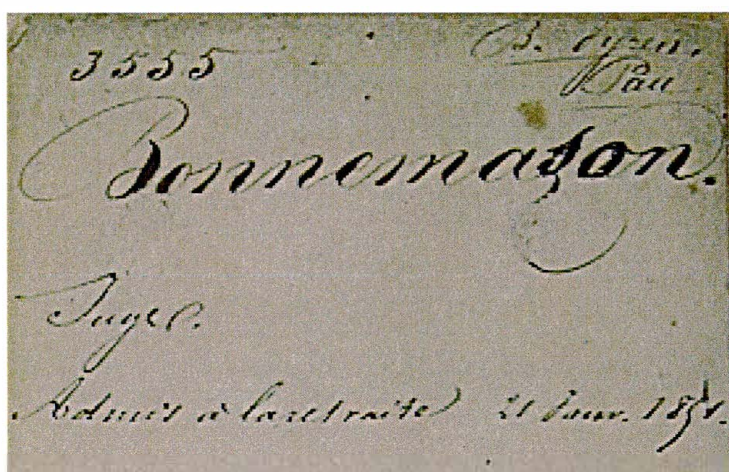 3555
B. Pyrén.
Pau
Bonnemason.
Juge.
Admis à la retraite 21 Janv. 1851.